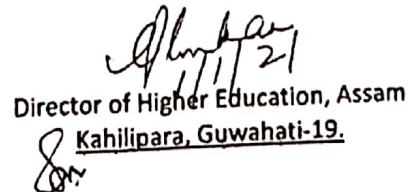 1/1/21
Director of Higher Education, Assam
Kahilipara, Guwahati-19.